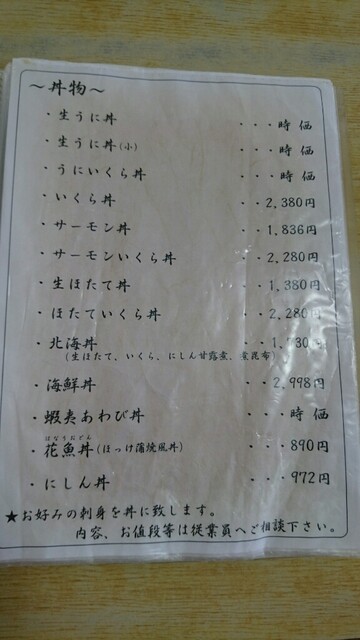 ～丼物～
・生うに丼 ・・・時価
・生うに丼(小) ・・・時価
・うにいくら丼 ・・・時価
・いくら丼 ・・2,380円
・サーモン丼 ・・1,836円
・サーモンいくら丼 ・・2,280円
・生ほたて丼 ・・1,380円
・ほたていくら丼 ・・2,280円
・北海丼
(生ほたて、いくら、にしん甘露煮、煮昆布)
・海鮮丼 ・・2,998円
・蝦夷あわび丼 ・・・時価
はなうおどん
・花魚丼(ほっけ蒲焼風丼) ・・・890円
・にしん丼 ・・・972円
★お好みの刺身を丼に致します。
内容、お値段等は従業員へご相談下さい。